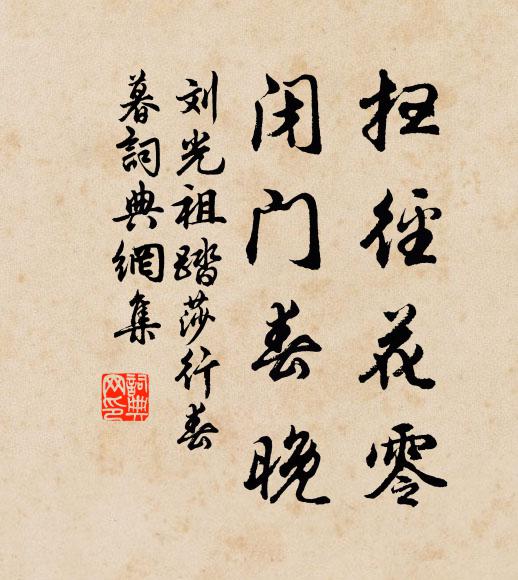 扫径花零
闭门春晚
刘光祖踏莎行春
暮詞典網集
詞典
网印